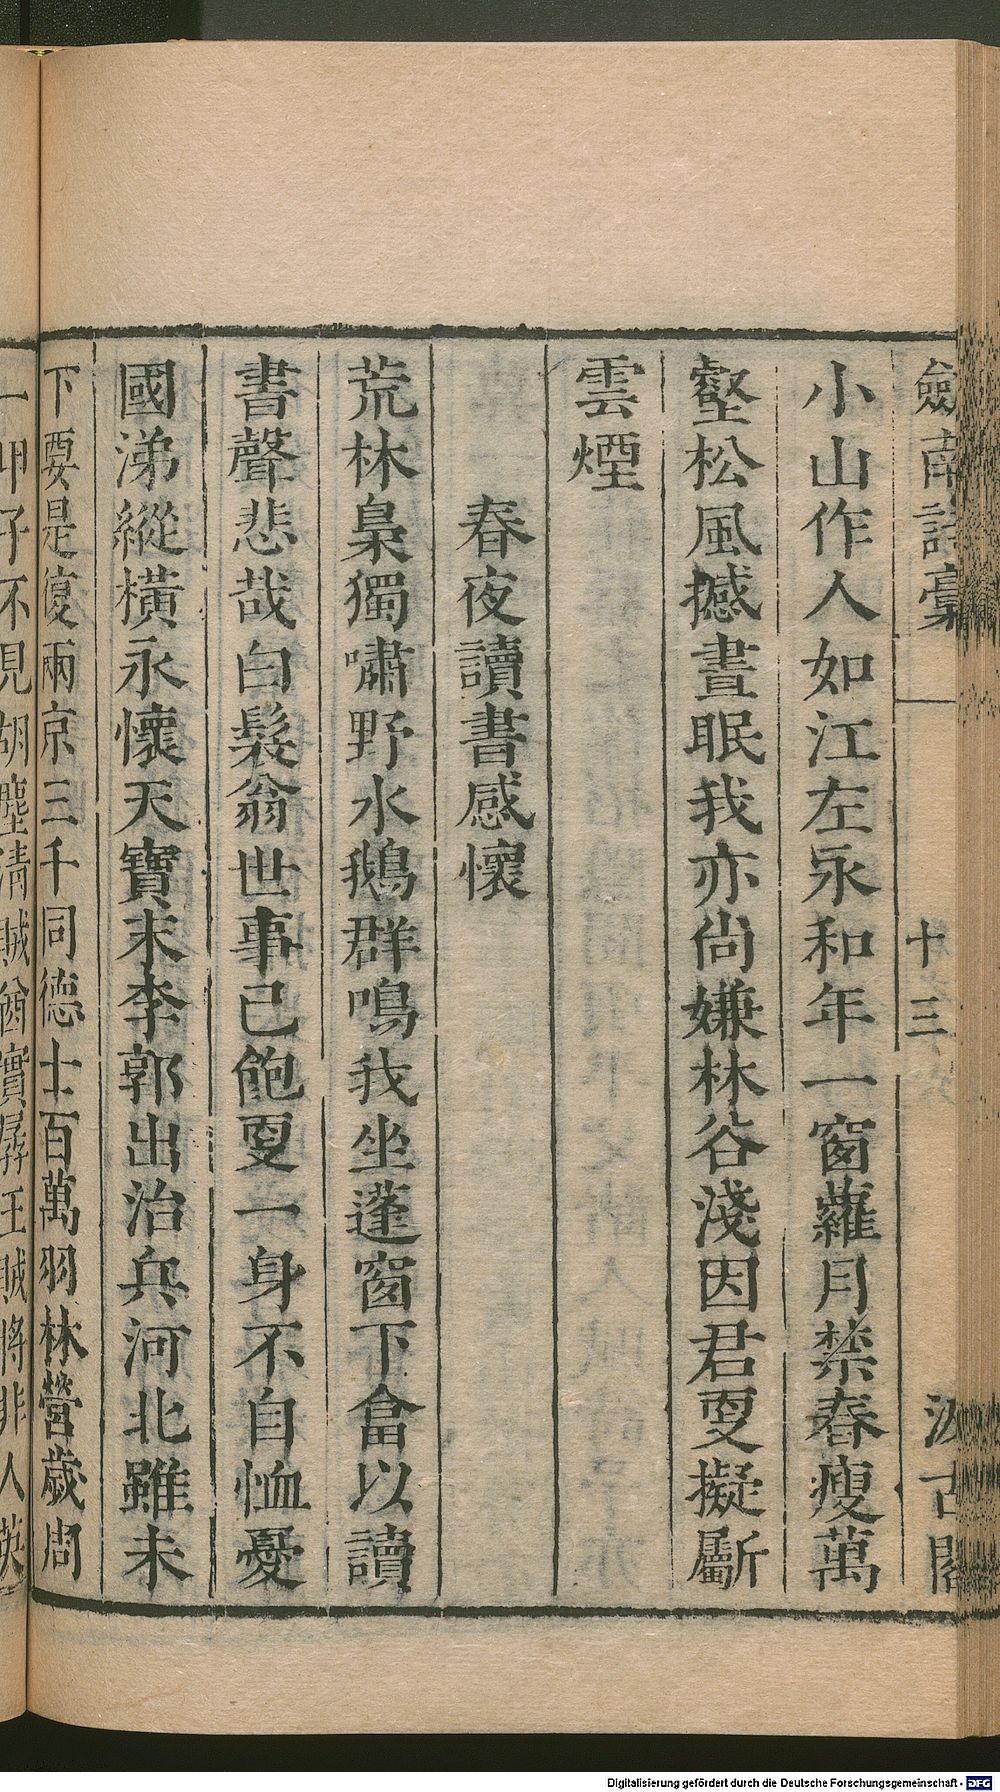 劍南詩稾 十三 汲古閣
小山作人如江左永和年一窗蘿月禁春瘦萬
壑松風撼晝眠我亦尚嫌林谷淺因君更擬斸
雲煙
春夜讀書感懷
荒林梟獨嘯野水鵝群鳴我坐蓬窗下畣以讀
書聲悲哉白髮翁世事已飽更一身不自恤憂
國涕縱橫永懷天寶末李郭出治兵河北雖未
下要是復兩京三千同德士百萬羽林營歲周
一甲子不見胡塵清賊酋實孱王賊將非人英
Digitalisierung gefördert durch die Deutsche Forschungsgemeinschaft - DFG